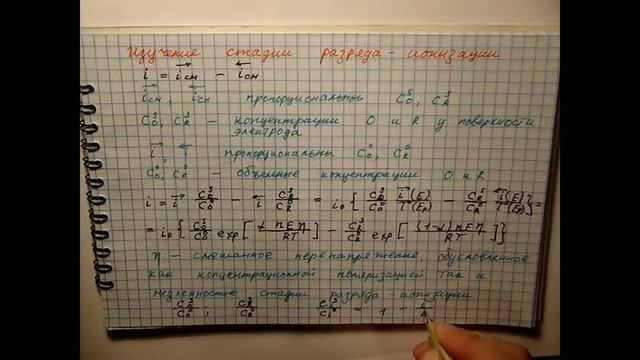 Изучение стадии разряда - ионизации
i = i⃗см - i⃖см
i⃗см, i⃖см пропорциональны C_O^S, C_R^S
C_O^S, C_R^S - концентрации O и R у поверхности
электрода
i⃗, i⃖ пропорциональны C_O^0, C_R^0
C_O^0, C_R^0 - объемные концентрации O и R
i = i⃗ C_O^S/C_O^0 - i⃖ C_R^S/C_R^0 = i₀ { C_O^S/C_O^0 i⃗(E)/i⃗(E_p) - C_R^S/C_R^0 i⃖(E)/i⃖(E_p) } =
= i₀ { C_O^S/C_O^0 exp[ α n F η / RT ] - C_R^S/C_R^0 exp[ (1-α) n F η / RT ] }
η - смешанное перенапряжение, обусловленное
как концентрационной поляризацией так и
медленностью стадии разряда - ионизации
C_O^S/C_O^0 ; C_R^S/C_R^0 = 1 -